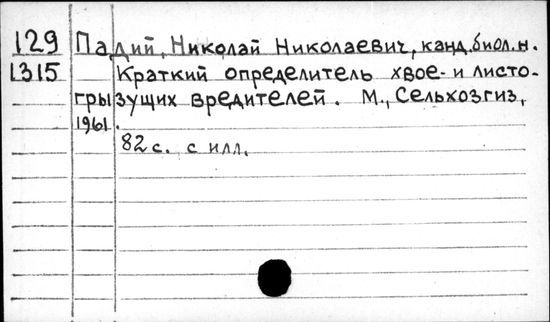 129 Падий, Николай Николаевич, канд.биол.н.
1315 Краткий определитель хвое- и листо-
грызущих вредителей. М., Сельхозгиз,
1961.
82с. с илл.